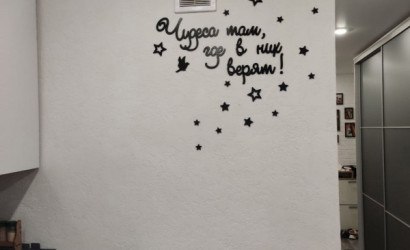 Чудеса там,
где в них
верят!